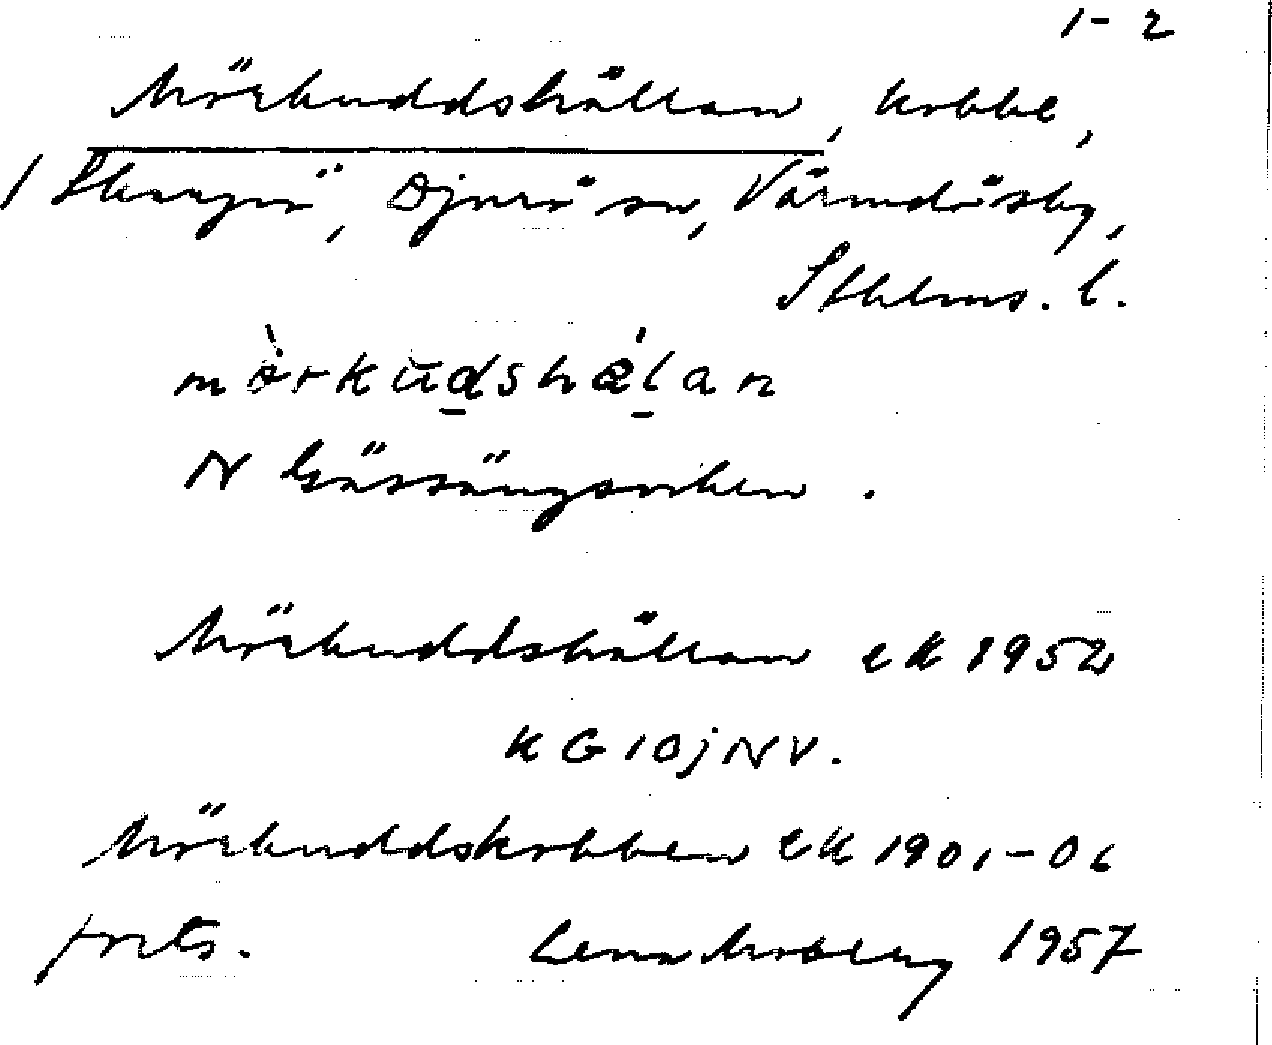 1-2
Mörkuddshällan, kobbe,
/ Stavsö, Djurö sn, Värmdö sky,
Sthlms. l.
mörkudshälan
N Gässängsviken.
Mörkuddshällan ek 1952
K G 10j NV.
Mörkuddskobben ek 1901-06
forts. Lena Moberg 1957